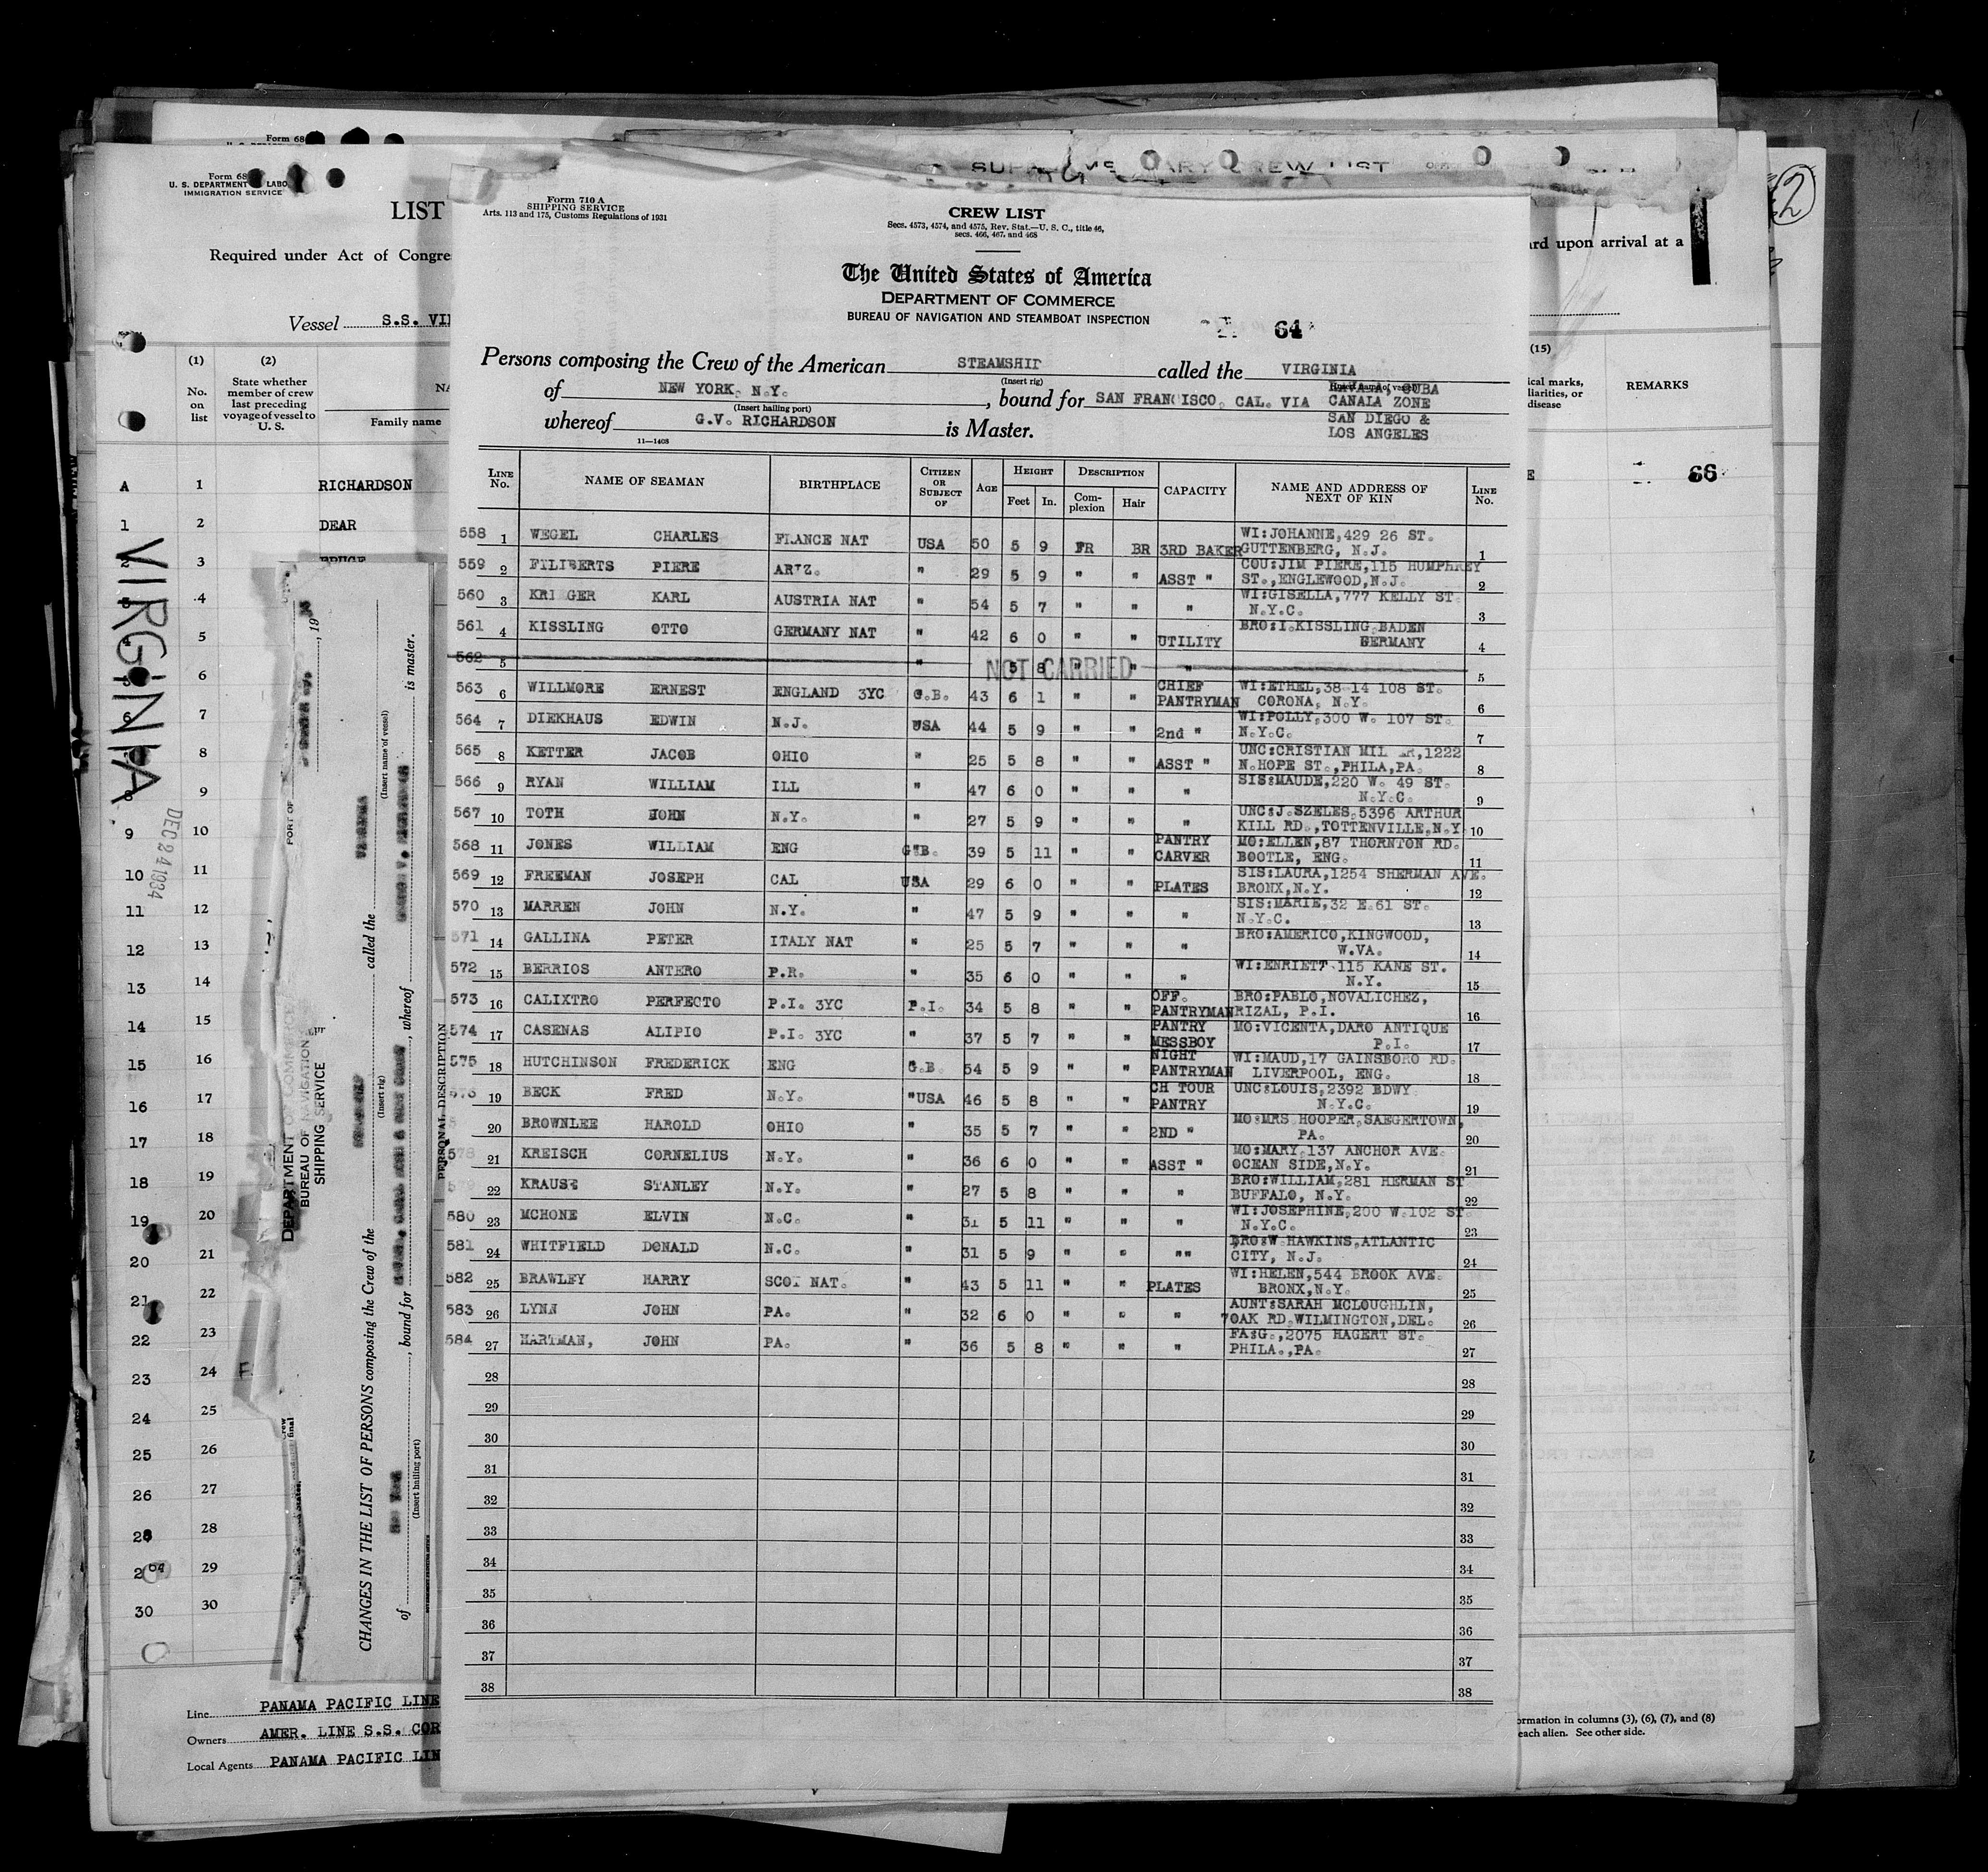 SUPPLEMENTARY CREW LIST
Form 68
Form 68
U. S. DEPARTMENT LABO
IMMIGRATION SERVICE
LIST
Required under Act of Congre
Vessel S.S. VI
(1) (2)
No. on list
State whether member of crew last preceding voyage of vessel to U. S.
NA
Family name
A 1 RICHARDSON
1 2 DEAR
VIRGINIA
DEC 24 1934
Line PANAMA PACIFIC LINE
Owners AMER. LINE S.S. COR
Local Agents PANAMA PACIFIC LIN
DEPARTMENT OF COMMERCE
BUREAU OF NAVIGATION
SHIPPING SERVICE
PORT OF , 19
CHANGES IN THE LIST OF PERSONS composing the Crew of the called the
(Insert rig) (Insert name of vessel)
of , bound for , whereof is master.
(Insert hailing port)
PERSONAL DESCRIPTION
Form 710 A
SHIPPING SERVICE
Arts. 113 and 175, Customs Regulations of 1931
CREW LIST
Secs. 4573, 4574, and 4575, Rev. Stat.—U. S. C., title 46,
secs. 466, 467, and 468
The United States of America
DEPARTMENT OF COMMERCE
BUREAU OF NAVIGATION AND STEAMBOAT INSPECTION
64
Persons composing the Crew of the American STEAMSHIP called the VIRGINIA
(Insert rig) (Insert name of vessel)
of NEW YORK, N.Y. , bound for SAN FRANCISCO, CAL. VIA HAVANA, CUBA
CANALA ZONE
(Insert hailing port)
SAN DIEGO &
LOS ANGELES
whereof G.V. RICHARDSON is Master.
11—1408
LINE No. NAME OF SEAMAN BIRTHPLACE CITIZEN OR SUBJECT OF AGE HEIGHT Feet In. DESCRIPTION Complexion Hair CAPACITY NAME AND ADDRESS OF NEXT OF KIN LINE No.
558 1 WEGEL CHARLES FRANCE NAT USA 50 5 9 FR BR 3RD BAKER WI:JOHANNE,429 26 ST. GUTTENBERG, N.J. 1
559 2 FILIBERTS PIERE ARIZ. " 29 5 9 " " ASST " COU:JIM PIERE,115 HUMPHREY ST.,ENGLEWOOD,N.J. 2
560 3 KRIEGER KARL AUSTRIA NAT " 54 5 7 " " " WI:GISELLA,777 KELLY ST. N.Y.C. 3
561 4 KISSLING OTTO GERMANY NAT " 42 6 0 " " UTILITY BRO:I.KISSLING,BADEN GERMANY 4
562 5 " NOT CARRIED 5 8 " " " 5
563 6 WILLMORE ERNEST ENGLAND 3YC G.B. 43 6 1 " " CHIEF PANTRYMAN WI:ETHEL,38-14 108 ST. CORONA, N.Y. 6
564 7 DIEKHAUS EDWIN N.J. USA 44 5 9 " " 2nd " WI:POLLY,300 W. 107 ST. N.Y.C. 7
565 8 KETTER JACOB OHIO " 25 5 8 " " ASST " UNC:CRISTIAN MILLER,1222 N.HOPE ST.,PHILA,PA. 8
566 9 RYAN WILLIAM ILL " 47 6 0 " " " SIS:MAUDE,220 W. 49 ST. N.Y.C. 9
567 10 TOTH JOHN N.Y. " 27 5 9 " " " UNC:J.SZELES,5396 ARTHUR KILL RD.,TOTTENVILLE,N.Y. 10
568 11 JONES WILLIAM ENG G.B. 39 5 11 " " PANTRY CARVER MO:ELLEN,87 THORNTON RD. BOOTLE, ENG. 11
569 12 FREEMAN JOSEPH CAL USA 29 6 0 " " PLATES SIS:LAURA,1254 SHERMAN AVE. BRONX,N.Y. 12
570 13 MARREN JOHN N.Y. " 47 5 9 " " " SIS:MARIE,32 E.61 ST. N.Y.C. 13
571 14 GALLINA PETER ITALY NAT " 25 5 7 " " " BRO:AMERICO,KINGWOOD, W.VA. 14
572 15 BERRIOS ANTERO P.R. " 35 6 0 " " " WI:ENRIETT 115 KANE ST. N.Y. 15
573 16 CALIXTRO PERFECTO P.I. 3YC P.I. 34 5 8 " " OFF. PANTRYMAN BRO:PABLO,NOVALICHEZ, RIZAL, P.I. 16
574 17 CASENAS ALIPIO P.I. 3YC " 37 5 7 " " PANTRY MESSBOY MO:VICENTA,DARO ANTIQUE P.I. 17
575 18 HUTCHINSON FREDERICK ENG G.B. 54 5 9 " " NIGHT PANTRYMAN WI:MAUD,17 GAINSBORO RD. LIVERPOOL, ENG. 18
576 19 BECK FRED N.Y. "USA 46 5 8 " " CH TOUR PANTRY UNC:LOUIS,2392 BDWY. N.Y.C. 19
20 BROWNLEE HAROLD OHIO " 35 5 7 " " 2ND " MO:MRS HOOPER,SAEGERTOWN, PA. 20
578 21 KREISCH CORNELIUS N.Y. " 36 6 0 " " ASST " MO:MARY,137 ANCHOR AVE. OCEAN SIDE,N.Y. 21
579 22 KRAUSE STANLEY N.Y. " 27 5 8 " " " BRO:WILLIAM,281 HERMAN ST BUFFALO, N.Y. 22
580 23 MCHONE ELVIN N.C. " 31 5 11 " " " WI:JOSEPHINE,200 W.102 ST. N.Y.C. 23
581 24 WHITFIELD DONALD N.C. " 31 5 9 " " "" BRO:W HAWKINS,ATLANTIC CITY, N.J. 24
582 25 BRAWLEY HARRY SCOT NAT. " 43 5 11 " " PLATES WI:HELEN,544 BROOK AVE. BRONX,N.Y. 25
583 26 LYNN JOHN PA. " 32 6 0 " " " AUNT:SARAH MCLOUGHLIN, 7OAK RD.WILMINGTON,DEL. 26
584 27 HARTMAN, JOHN PA. " 36 5 8 " " " FA:G.,2075 HAGERT ST. PHILA.,PA. 27
28 28
29 29
30 30
31 31
32 32
33 33
34 34
35 35
36 36
37 37
38 38
2
ard upon arrival at a
(15)
ical marks,
liarities, or
disease
REMARKS
66
ormation in columns (3), (6), (7), and (8)
each alien. See other side.